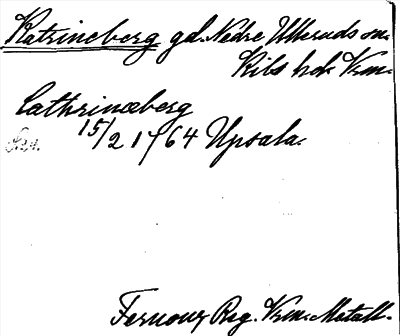 Katrineberg gd. Nedre Ulleruds sn.
Kils hd. Vrm.
Cathrinæberg
15/2 1764 Upsala.
Fernows Reg. Vrm. Metall.